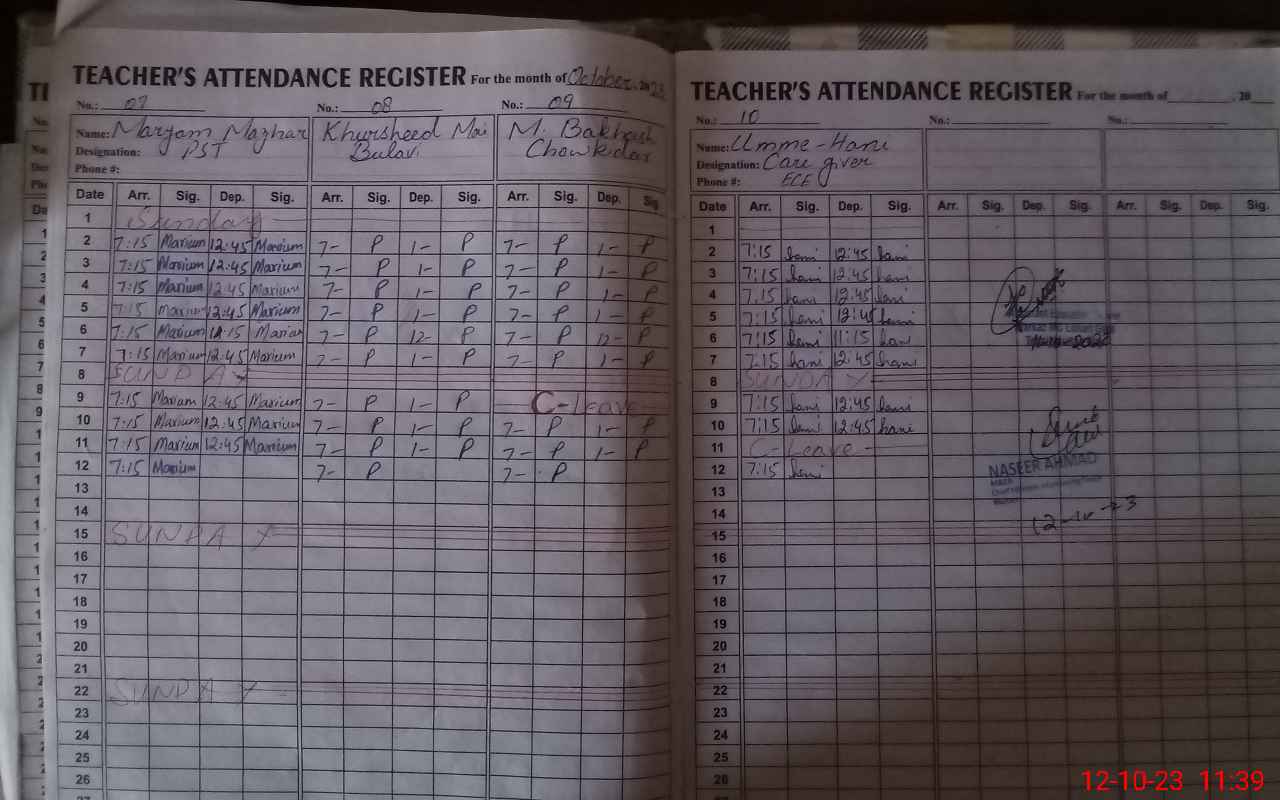 TEACHER'S ATTENDANCE REGISTER For the month of October, 2023
No.: 07 No.: 08 No.: 09
Name: Maryam Mazhar Khursheed Mai M. Bakhsh
Designation: PST Bulavi Chowkidar
Phone #:
Date Arr. Sig. Dep. Sig. Arr. Sig. Dep. Sig. Arr. Sig. Dep. Sig
1 Sunday
2 7:15 Marium 12:45 Marium 7- P 1- P 7- P 1- P
3 7:15 Marium 12:45 Marium 7- P 1- P 7- P 1- P
4 7:15 Marium 12:45 Marium 7- P 1- P 7- P 1- P
5 7:15 Marium 12:45 Marium 7- P 1- P 7- P 1- P
6 7:15 Marium 11:15 Marium 7- P 12- P 7- P 12- P
7 7:15 Marium 12:45 Marium 7- P 1- P 7- P 1- P
8 SUNDAY
9 7:15 Marium 12:45 Marium 7- P 1- P C-Leave
10 7:15 Marium 12:45 Marium 7- P 1- P 7- P 1- P
11 7:15 Marium 12:45 Marium 7- P 1- P 7- P 1- P
12 7:15 Marium 7- P 7- P
13
14
15 SUNDAY
16
17
18
19
20
21
22 SUNDAY
23
24
25
26
27
TEACHER'S ATTENDANCE REGISTER For the month of 20
No.: 10 No.: No.:
Name: Umme-Hani
Designation: Care giver
Phone #: ECE
Date Arr. Sig. Dep. Sig. Arr. Sig. Dep. Sig. Arr. Sig. Dep. Sig.
1
2 7:15 hani 12:45 hani
3 7:15 hani 12:45 hani
4 7:15 hani 12:45 hani
5 7:15 hani 12:45 hani
6 7:15 hani 11:15 hani
7 7:15 hani 12:45 hani
8 SUNDAY
9 7:15 hani 12:45 hani
10 7:15 hani 12:45 hani
11 C-Leave
12 7:15 hani
NASEER AHMAD
13
14 12-10-23
15
16
17
18
19
20
21
22
23
24
25
26
12-10-23 11:39